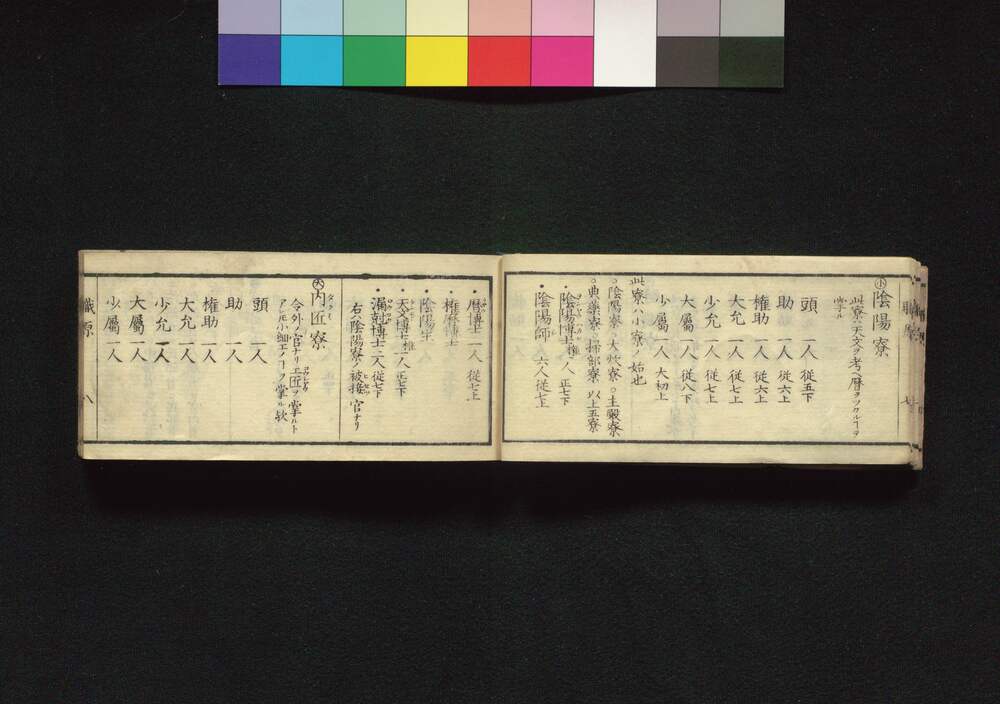 小 陰陽寮
此寮ハ天文ヲ考ヘ暦ヲツクルヿヲ
掌ル
頭 一人 従五下
助 一人 従六上
権助 一人 従六上
大允 一人 従七上
少允 一人 従七上
大属 一人 従八下
少属 一人 大初上
此寮ハ小寮ノ始也
○陰陽寮○大炊寮○主殿寮
○典薬寮○掃部寮 以上五寮
・陰陽博士 一人 正七下
・陰陽師 六人 従七上
・暦博士 一人 従七上
・権暦博士
・陰陽生
・天文博士 権一人 正七下
・漏剋博士 二人 従七下
右ハ陰陽寮ノ被接官ナリ
大 内匠寮
令外ノ官ナリ工匠ヲ掌ルト
小細工ノヿヲ掌ル欤
頭 一人
助 一人
権助 一人
大允 一人
少允 一人
大属 一人
少属 一人
職原 八